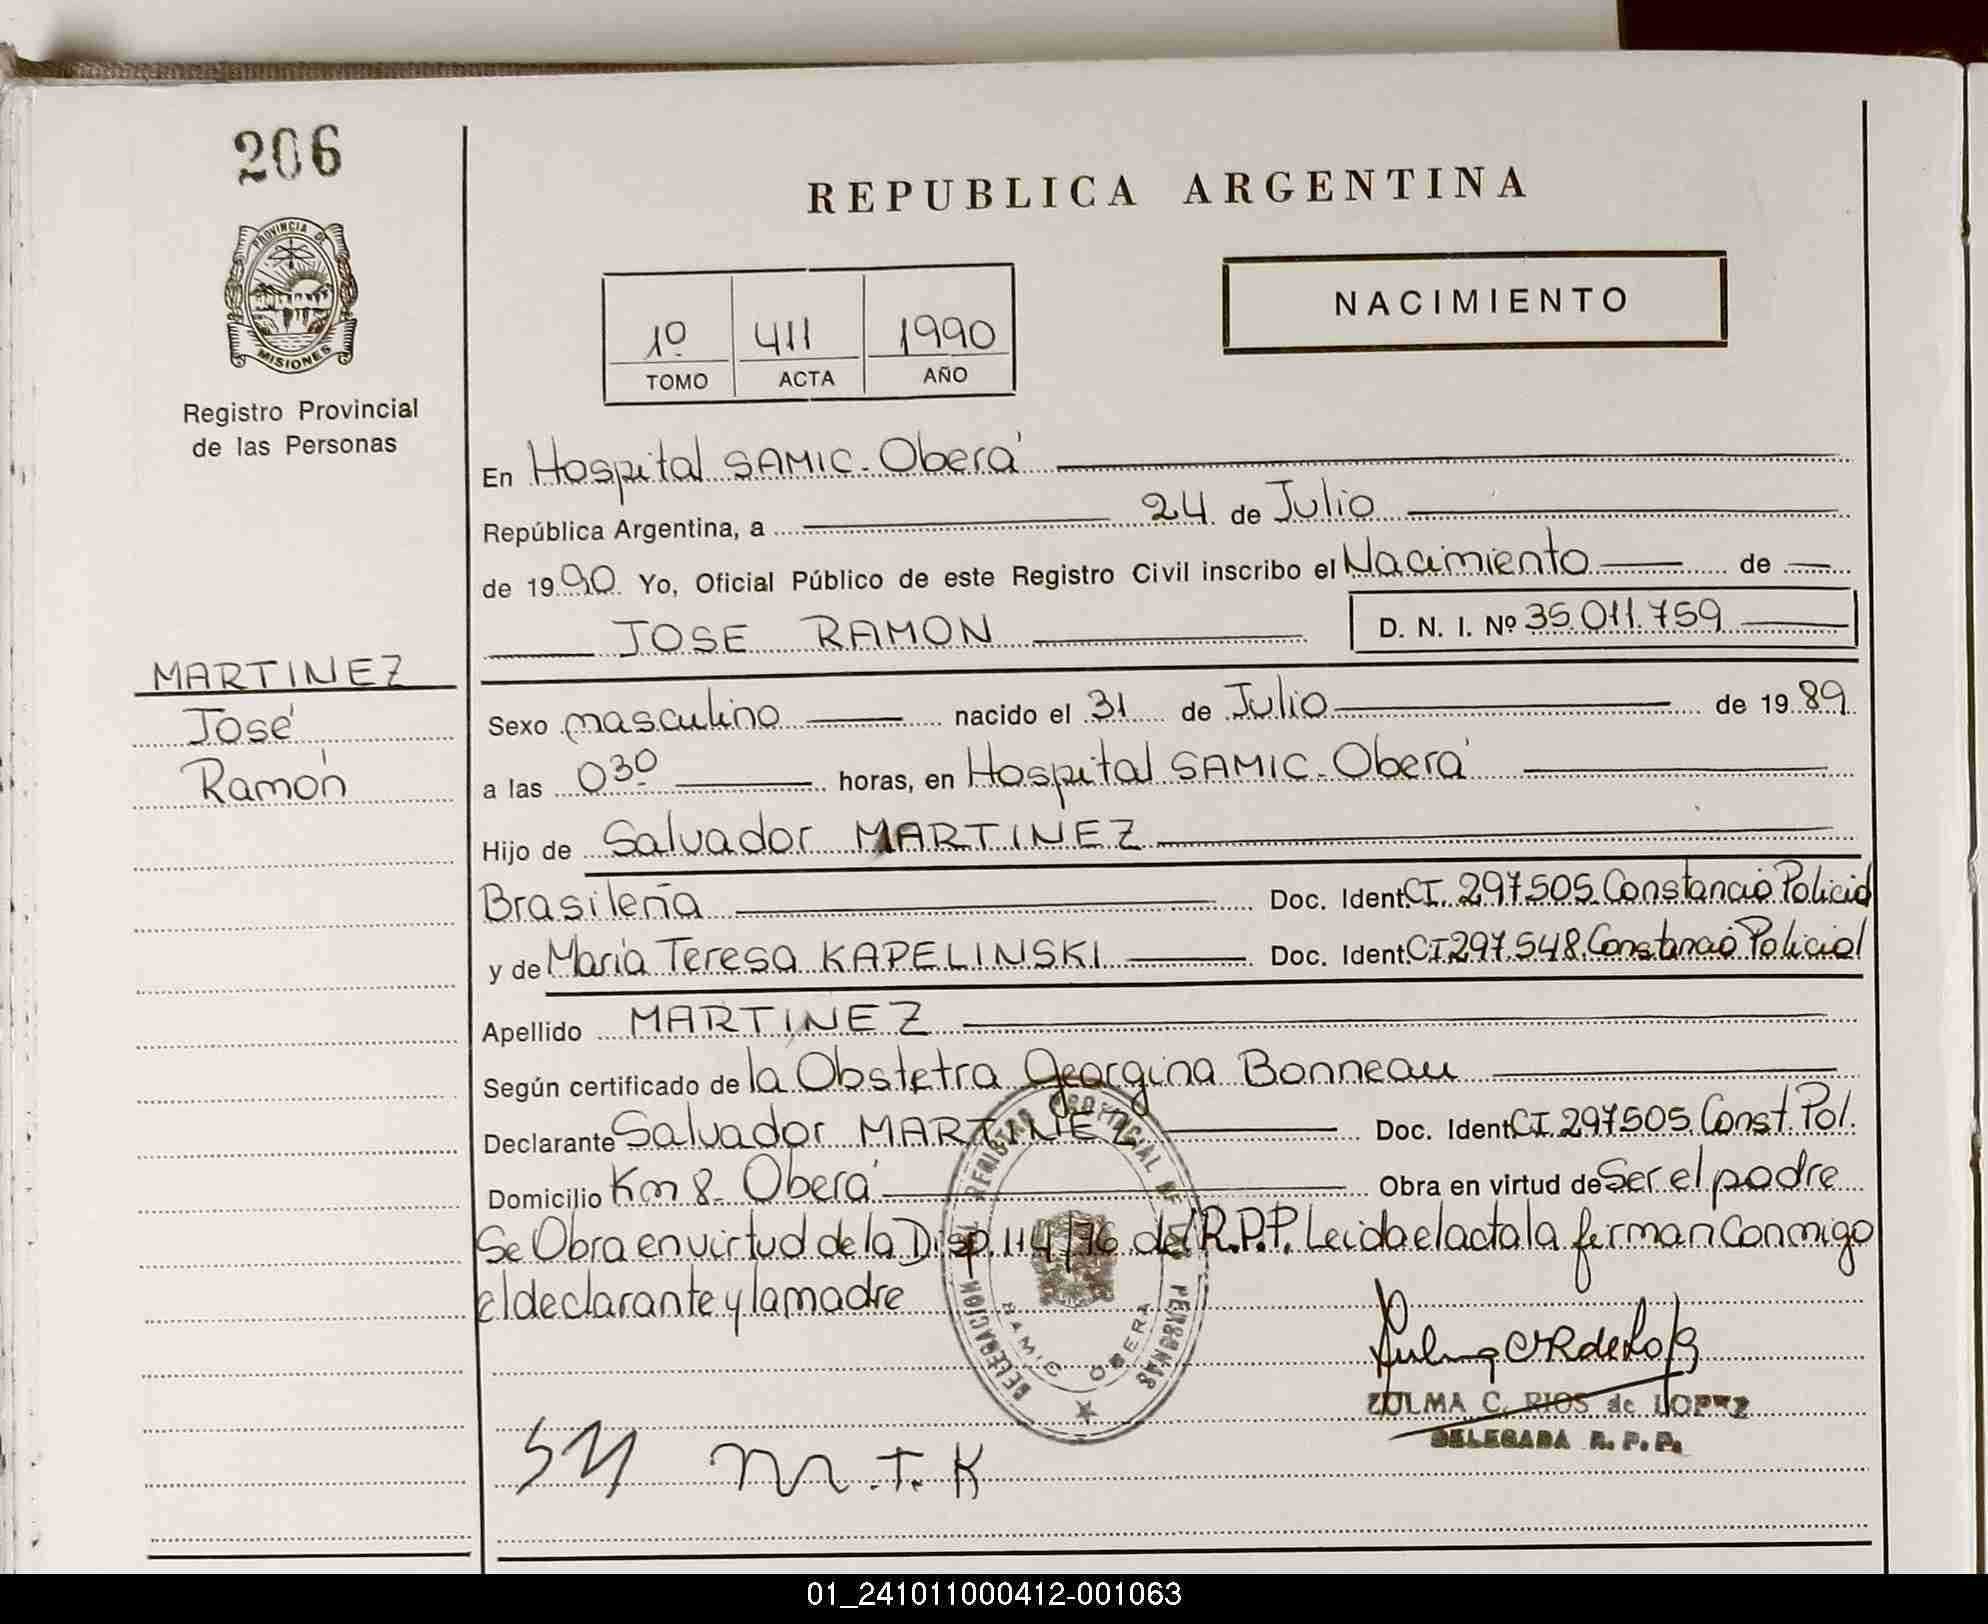 206
REPUBLICA ARGENTINA
PROVINCIA DE
MISIONES
Registro Provincial
de las Personas
1º 411 1990
TOMO ACTA AÑO
NACIMIENTO
En Hospital SAMIC - Oberá
República Argentina, a 24 de Julio
de 1990 Yo, Oficial Público de este Registro Civil inscribo el Nacimiento de
JOSE RAMON D. N. I. Nº 35.011.759
MARTINEZ
José
Ramón
Sexo masculino nacido el 31 de Julio de 1989
a las 0³⁰ horas, en Hospital SAMIC - Oberá
Hijo de Salvador MARTINEZ
Brasileña Doc. Ident CI. 297.505. Constancia Policial
y de María Teresa KAPELINSKI Doc. Ident CI 297.548. Constancia Policial
Apellido MARTINEZ
Según certificado de la Obstetra Georgina Bonneau
Declarante Salvador MARTINEZ Doc. Ident CI. 297505. Const. Pol.
Domicilio Km 8 - Oberá Obra en virtud de Ser el padre
Se Obra en virtud de la Disp. 114/76 del R.P.P. Leida el acta la firman conmigo
el declarante y la madre
REGISTRO PROVINCIAL DE PERSONAS
DELEGACION
SAMIC OBERA
ZULMA C. RIOS de LOPEZ
DELEGADA R. P. P.
SM M.T.K
01_241011000412-001063